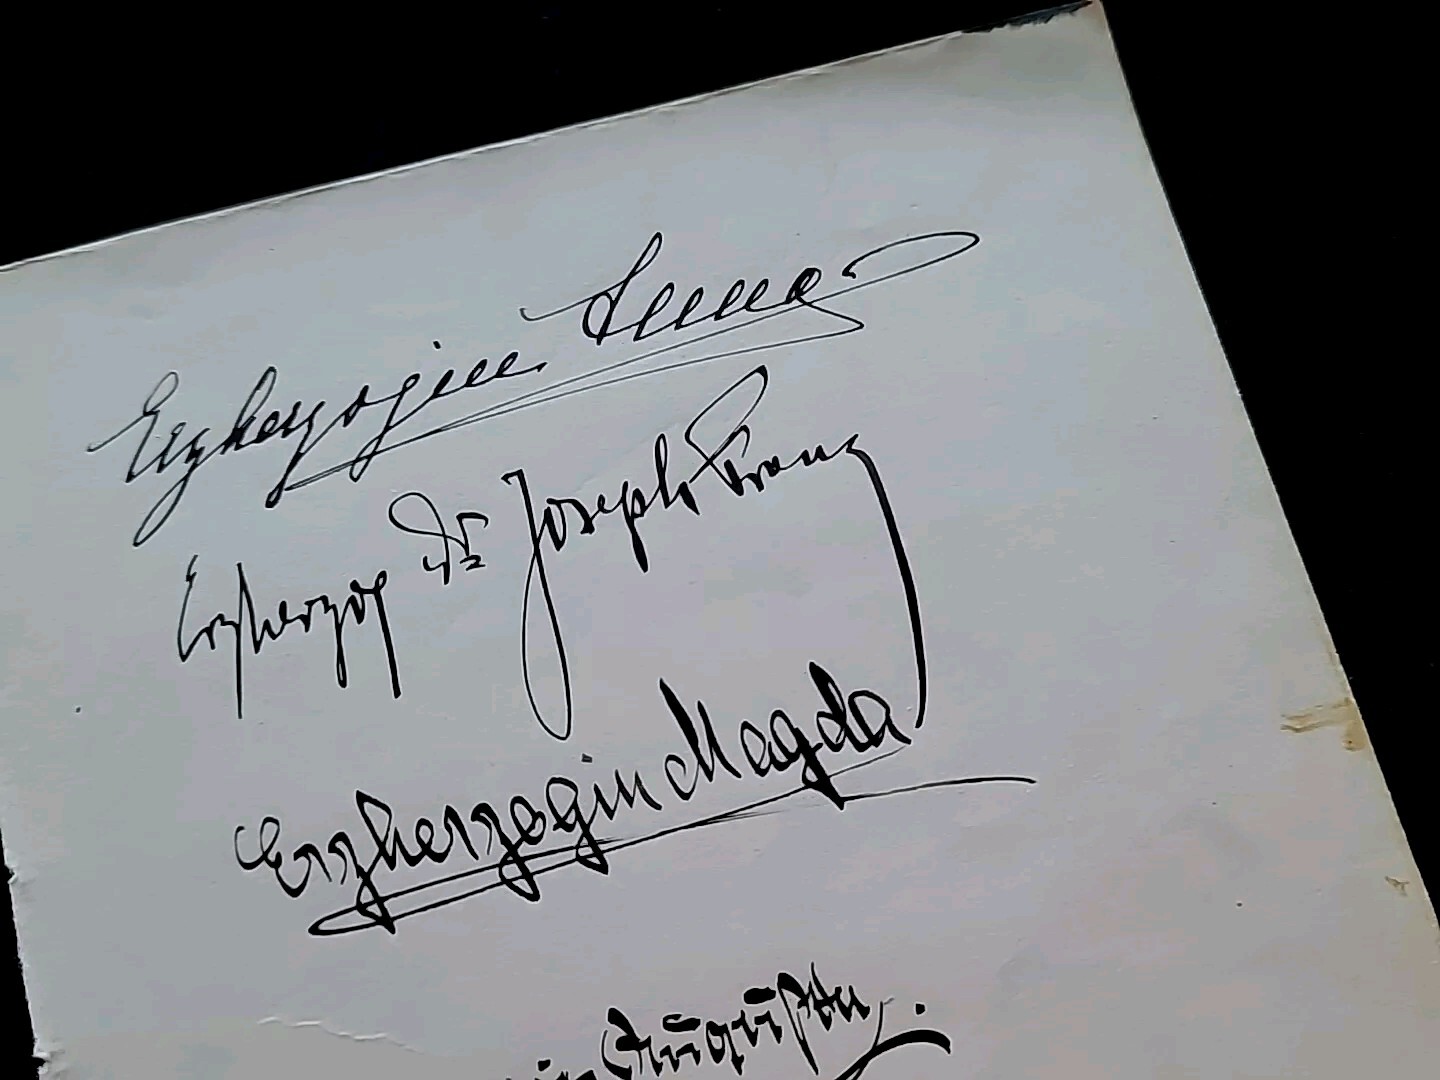 Erzherzogin Anna
Erzherzog Dr Joseph Franz
Erzherzogin Magda
Auguste.